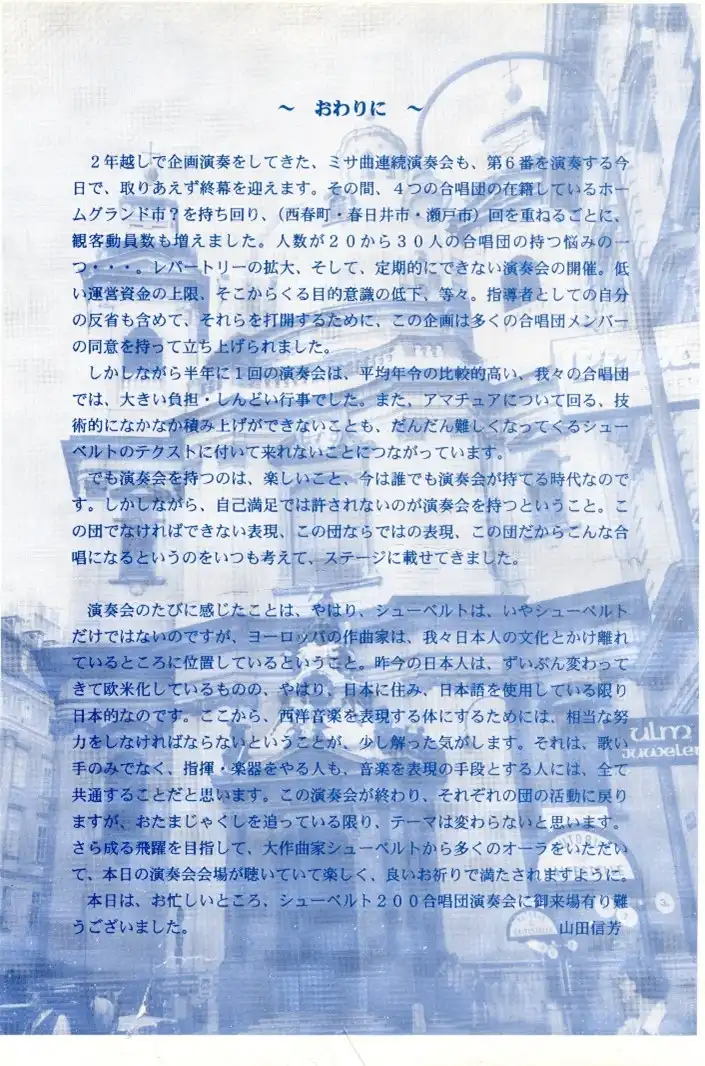 ～　おわりに　～
２年越しで企画演奏をしてきた、ミサ曲連続演奏会も、第６番を演奏する今
日で、取りあえず終幕を迎えます。その間、４つの合唱団の在籍しているホー
ムグランド市？を持ち回り、（西春町・春日井市・瀬戸市）回を重ねるごとに、
観客動員数も増えました。人数が２０から３０人の合唱団の持つ悩みの一
つ・・・。レパートリーの拡大、そして、定期的にできない演奏会の開催。低
い運営資金の上限、そこからくる目的意識の低下、等々。指導者としての自分
の反省も含めて、それらを打開するために、この企画は多くの合唱団メンバー
の同意を持って立ち上げられました。
しかしながら半年に１回の演奏会は、平均年令の比較的高い、我々の合唱団
では、大きい負担・しんどい行事でした。また、アマチュアについて回る、技
術的になかなか積み上げができないことも、だんだん難しくなってくるシュー
ベルトのテクストに付いて来れないことにつながっています。
でも演奏会を持つのは、楽しいこと、今は誰でも演奏会が持てる時代なので
す。しかしながら、自己満足では許されないのが演奏会を持つということ。こ
の団でなければできない表現、この団ならではの表現、この団だからこんな合
唱になるというのをいつも考えて、ステージに載せてきました。
演奏会のたびに感じたことは、やはり、シューベルトは、いやシューベルト
だけではないのですが、ヨーロッパの作曲家は、我々日本人の文化とかけ離れ
ているところに位置しているということ。昨今の日本人は、ずいぶん変わって
きて欧米化しているものの、やはり、日本に住み、日本語を使用している限り
日本的なのです。ここから、西洋音楽を表現する体にするためには、相当な努
力をしなければならないということが、少し解った気がします。それは、歌い
手のみでなく、指揮・楽器をやる人も、音楽を表現の手段とする人には、全て
共通することだと思います。この演奏会が終わり、それぞれの団の活動に戻り
ますが、おたまじゃくしを追っている限り、テーマは変わらないと思います。
さら成る飛躍を目指して、大作曲家シューベルトから多くのオーラをいただい
て、本日の演奏会会場が聴いていて楽しく、良いお祈りで満たされますように。
本日は、お忙しいところ、シューベルト２００合唱団演奏会に御来場有り難
うございました。　山田信芳
ulm
juwelier